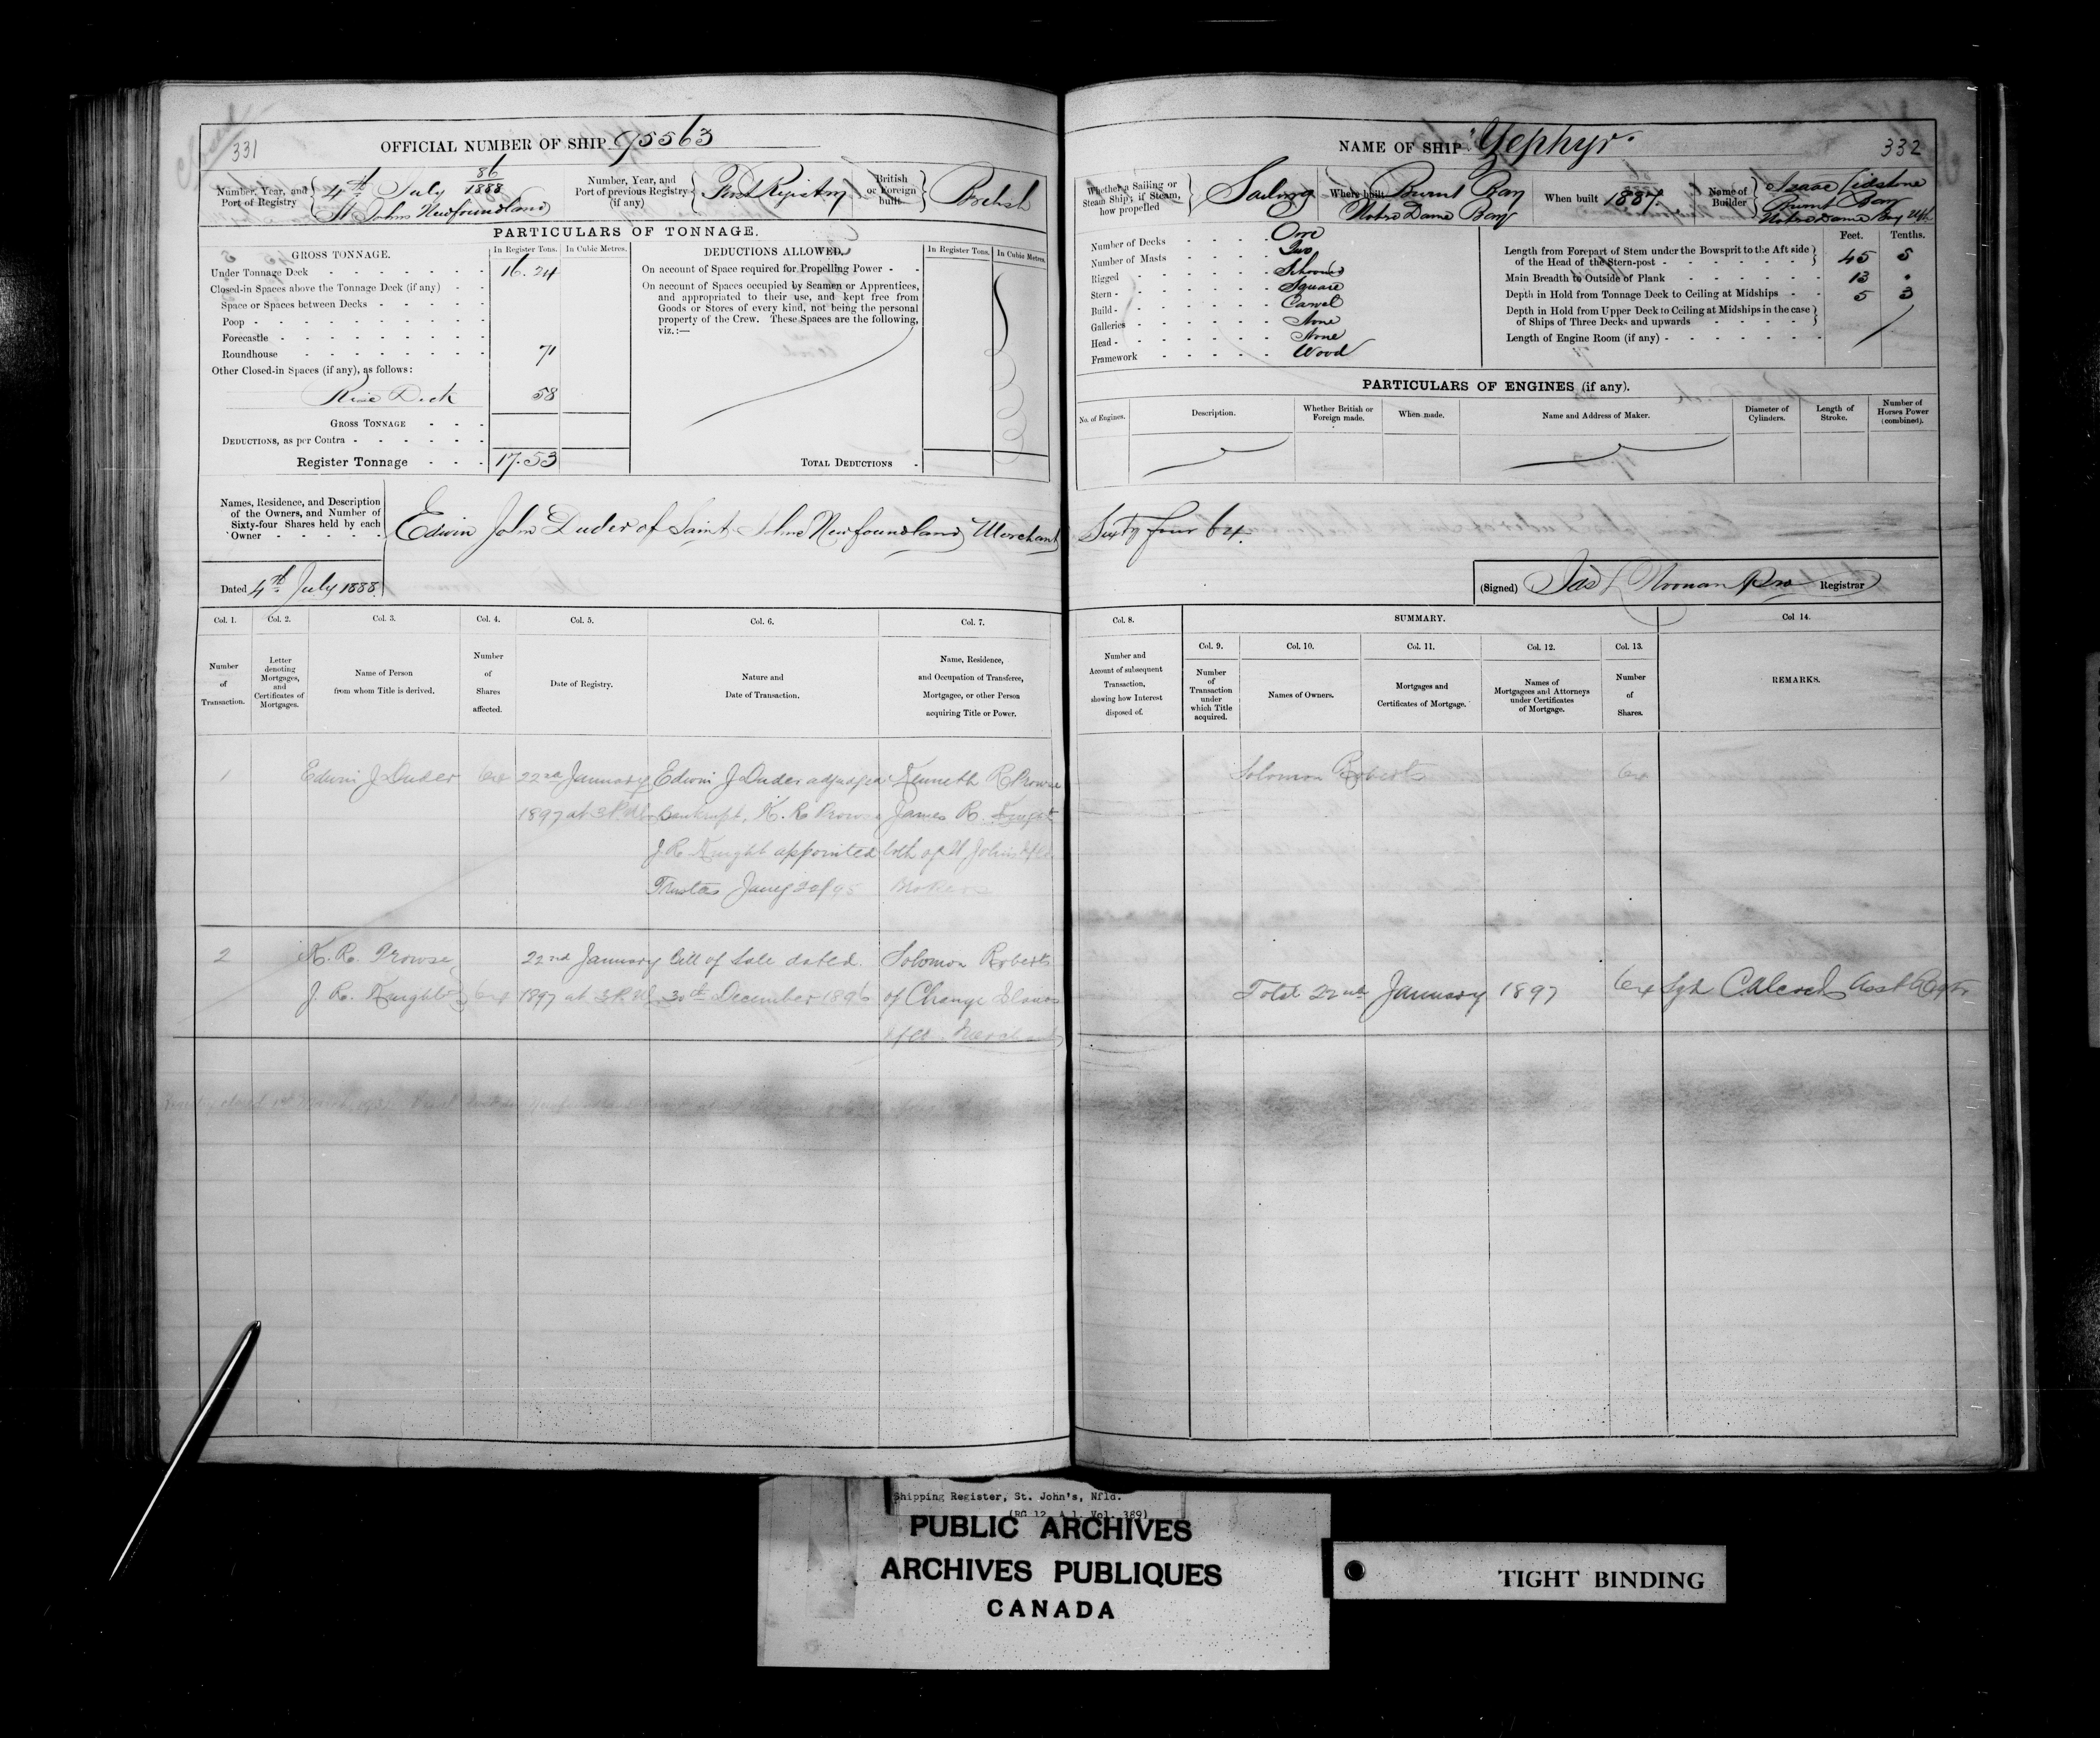 Closed
331
OFFICIAL NUMBER OF SHIP 95563
Number, Year, and Port of Registry { 4th July 86/1888
St. Johns Newfoundland
Number, Year, and Port of previous Registry (if any) { First Registry
British or Foreign built } British
PARTICULARS OF TONNAGE.
GROSS TONNAGE. In Register Tons. In Cubic Metres.
Under Tonnage Deck 16.24
Closed-in Spaces above the Tonnage Deck (if any)
Space or Spaces between Decks
Poop
Forecastle
Roundhouse 71
Other Closed-in Spaces (if any), as follows:
Rise Deck 58
GROSS TONNAGE
DEDUCTIONS, as per Contra
Register Tonnage 17.53
DEDUCTIONS ALLOWED. In Register Tons. In Cubic Metres.
On account of Space required for Propelling Power
On account of Spaces occupied by Seamen or Apprentices,
and appropriated to their use, and kept free from
Goods or Stores of every kind, not being the personal
property of the Crew. These Spaces are the following,
viz.:—
TOTAL DEDUCTIONS
Names, Residence, and Description
of the Owners, and Number of
Sixty-four Shares held by each
Owner
Edwin John Duder of Saint Johns Newfoundland Merchant
Dated 4th July 1888
Col. 1. Col. 2. Col. 3. Col. 4. Col. 5. Col. 6. Col. 7.
Number of Transaction.
Letter denoting Mortgages, and Certificates of Mortgages.
Name of Person from whom Title is derived.
Number of Shares affected.
Date of Registry.
Nature and Date of Transaction.
Name, Residence, and Occupation of Transferee, Mortgagee, or other Person acquiring Title or Power.
1 Edwin J Duder 64 22nd January Edwin J Duder adjudged Kenneth R Prowse
1897 at 3 P.M. bankrupt, K. R. Prowse James R. Knight
J. R. Knight appointed both of St. Johns Nfld
Trustees Brokers
2 K. R. Prowse 22nd January bill of Sale dated Solomon Roberts
J. R. Knight } 64 1897 at 3 P.M. 30th December 1896 of Change Islands
Nfld. Merchant
NAME OF SHIP "Zephyr"
332
Whether a Sailing or Steam Ship; if Steam, how propelled } Sailing
Where built Burnt Bay
Notre Dame Bay
When built 1887.
Name of Builder } Isaac Lidstone
Burnt Bay
Notre Dame Bay Nfld
Number of Decks One
Number of Masts Two
Rigged Schooner
Stern Square
Build Carvel
Galleries None
Head None
Framework Wood
Feet. Tenths.
Length from Forepart of Stem under the Bowsprit to the Aft side
of the Head of the Stern-post } 45 5
Main Breadth to Outside of Plank 13 "
Depth in Hold from Tonnage Deck to Ceiling at Midships 5 3
Depth in Hold from Upper Deck to Ceiling at Midships in the case
of Ships of Three Decks and upwards }
Length of Engine Room (if any)
PARTICULARS OF ENGINES (if any).
No. of Engines. Description. Whether British or Foreign made. When made. Name and Address of Maker. Diameter of Cylinders. Length of Stroke. Number of Horses Power (combined).
Sixty four 64.
(Signed) Jas L Noonan Registrar
Col. 8. SUMMARY. Col 14.
Col. 9. Col. 10. Col. 11. Col. 12. Col. 13.
Number and Account of subsequent Transaction, showing how Interest disposed of.
Number of Transaction under which Title acquired.
Names of Owners.
Mortgages and Certificates of Mortgage.
Names of Mortgagees and Attorneys under Certificates of Mortgage.
Number of Shares.
REMARKS.
Solomon Roberts 64
Total 22nd January 1897 64 Sgd C Alcock Asst Regtr
Shipping Register, St. John's, Nfld.
(RG 12, A 1, Vol. 389)
PUBLIC ARCHIVES
ARCHIVES PUBLIQUES
CANADA
TIGHT BINDING